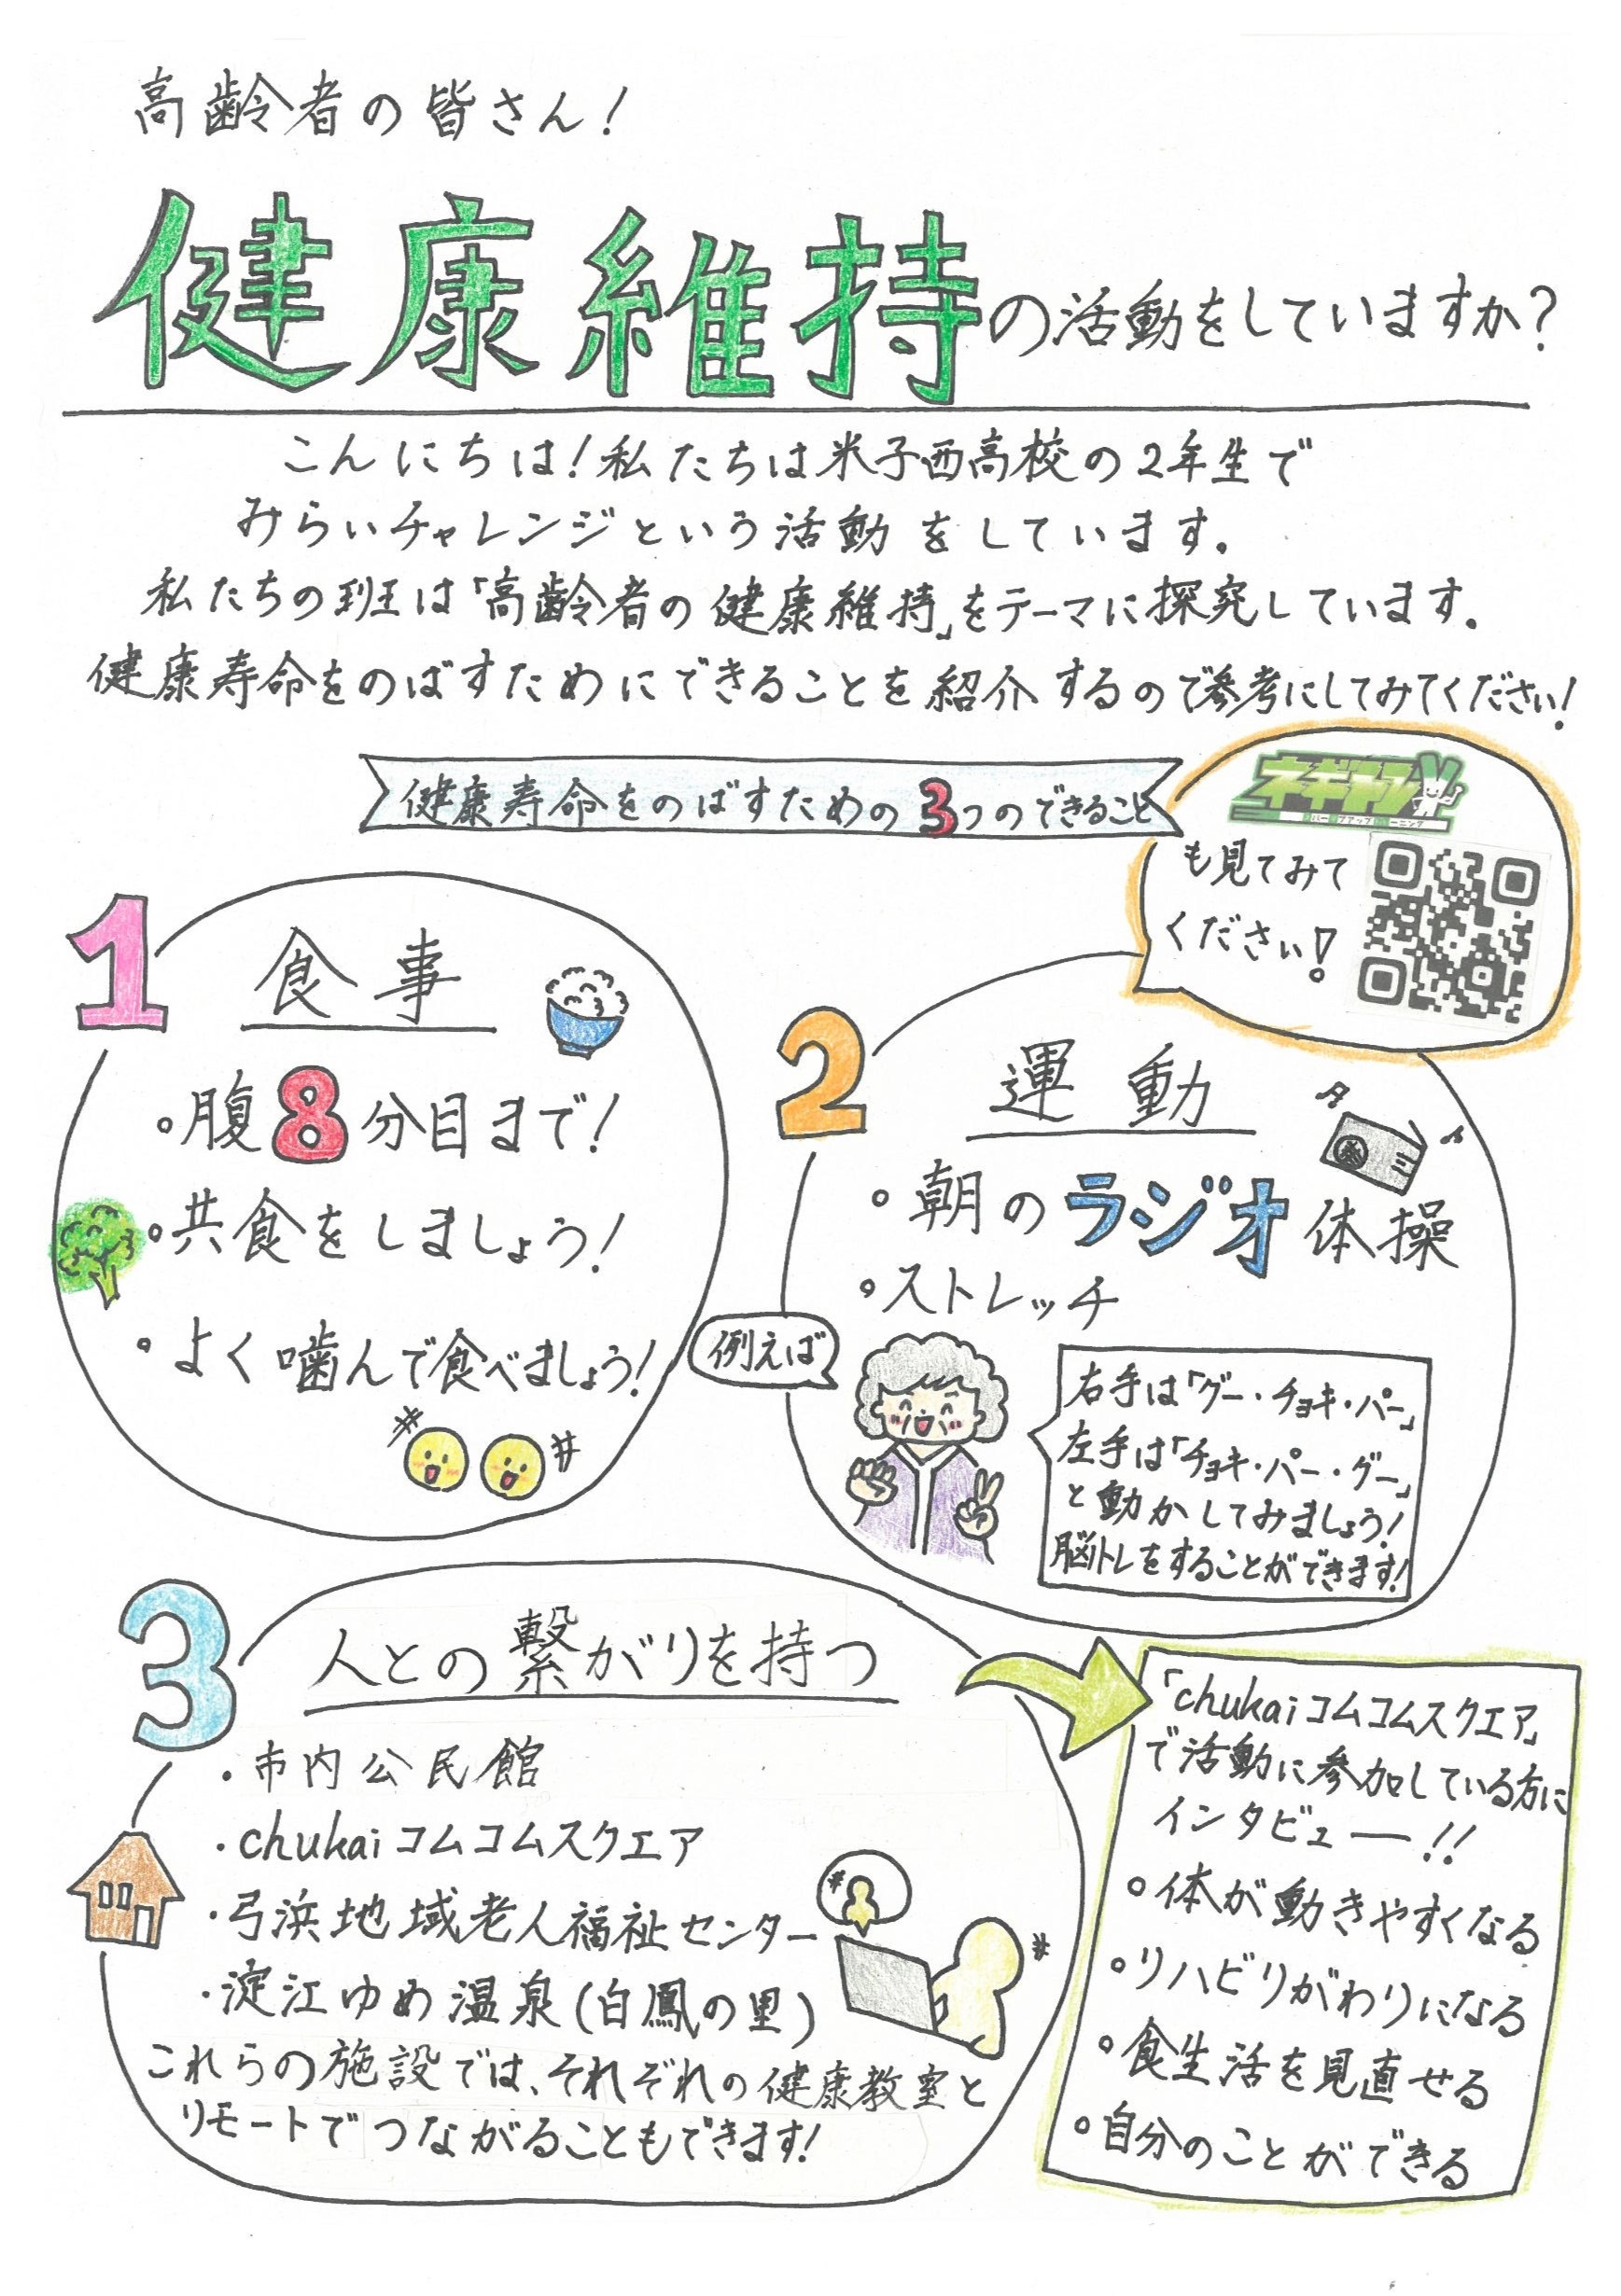 高齢者の皆さん!
健康維持の活動をしていますか?
こんにちは!私たちは米子西高校の2年生で
みらいチャレンジという活動をしています。
私たちの班は「高齢者の健康維持」をテーマに探究しています。
健康寿命をのばすためにできることを紹介するので参考にしてみてください!
健康寿命をのばすための3つのできること
も見てみて
ください!
1 食事
・腹8分目まで!
・共食をしましょう!
・よく噛んで食べましょう!
2 運動
・朝のラジオ体操
・ストレッチ
例えば
右手は「グー・チョキ・パー」
左手は「チョキ・パー・グー」
と動かしてみましょう!
脳トレをすることができます!
3 人との繋がりを持つ
・市内公民館
・chukaiコムコムスクエア
・弓浜地域老人福祉センター
・淀江ゆめ温泉(白鳳の里)
これらの施設では、それぞれの健康教室と
リモートでつながることもできます!
「chukaiコムコムスクエア」
で活動に参加している方に
インタビュー!!
・体が動きやすくなる
・リハビリがわりになる
・食生活を見直せる
・自分のことができる